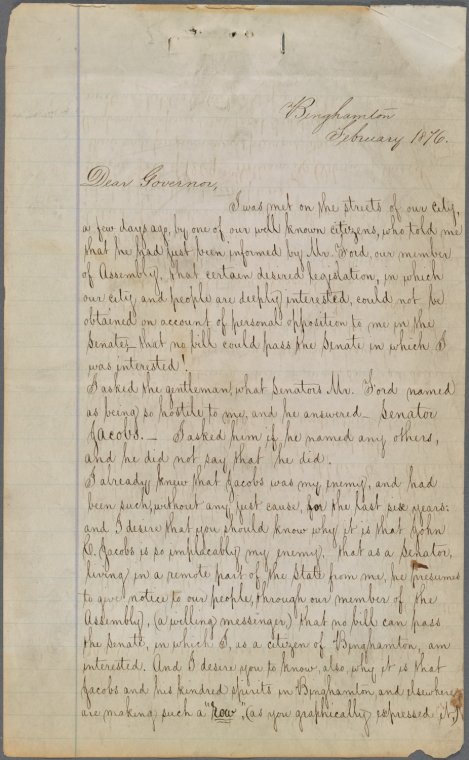 Binghamton
February 1876.
Dear Governor,
I was met on the streets of our city,
a few days ago, by one of our well known citizens, who told me
that he had just been informed by Mr. Ford, our member
of Assembly, that certain desired legislation, in which
our city and people are deeply interested, could not be
obtained on account of personal opposition to me in the
Senate;— that no bill could pass the Senate in which I
was interested!
I asked the gentleman, what Senators Mr. Ford named
as being so hostile to me, and he answered— Senator
Jacobs.— I asked him if he named any others,
and he did not say that he did.
I already knew that Jacobs was my enemy, and had
been such, without any just cause, for the last six years:
and I desire that you should know why it is that John
C. Jacobs is so implacably my enemy, that as a Senator,
living in a remote part of the State from me, he presumes
to give notice to our people, through our member of the
Assembly, (a willing messenger,) that no bill can pass
the Senate, in which I, as a citizen of Binghamton, am
interested. And I desire you to know, also, why it is that
Jacobs and his kindred spirits in Binghamton and elsewhere
are making such a "row", (as you graphically expressed it,)